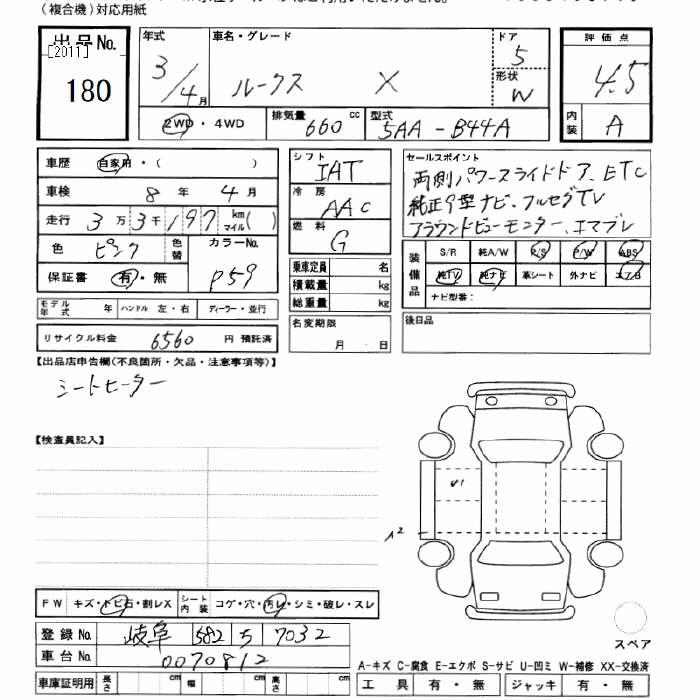 (複合機)対応用紙
出品No. 年式 車名・グレード ドア 評価点
[2011] 3/4月 ルークス X 5 4.5
180 形状 W
2WD・4WD 排気量 660 cc 型式 5AA-B44A 内装 A
車歴 自家用・( ) シフト IAT セールスポイント
車検 8年 4月 冷房 AAC 両側パワースライドドア、ETC
走行 3万3千197 km マイル( ) 燃料 G 純正9型ナビ、フルセグTV
色 ピンク 色替 カラーNo. P59 アラウンドビューモニター、エマブレ
保証書 有・無 乗車定員 名 装備品 S/R 純A/W P/S P/W ABS
積載量 kg 純TV 純ナビ 革シート 外ナビ エアB
総重量 kg ナビ型番:
モデル年式 年 ハンドル 左・右 ディーラー・並行 名変期限 月 日 後日品
リサイクル料金 6560 円 預託済
【出品店申告欄(不良箇所・欠品・注意事項等)】
シートヒーター
【検査員記入】
U1
A2
FW キズ・トビ石・割レX シート内装 コゲ・穴・汚レ・シミ・破レ・スレ
登録No. 岐阜 582 ち 7032
スペア
車台No. 0070812
A-キズ C-腐食 E-エクボ S-サビ U-凹ミ W-補修 XX-交換済
車庫証明用 長さ cm 幅 cm 高さ cm 工具 有・無 ジャッキ 有・無